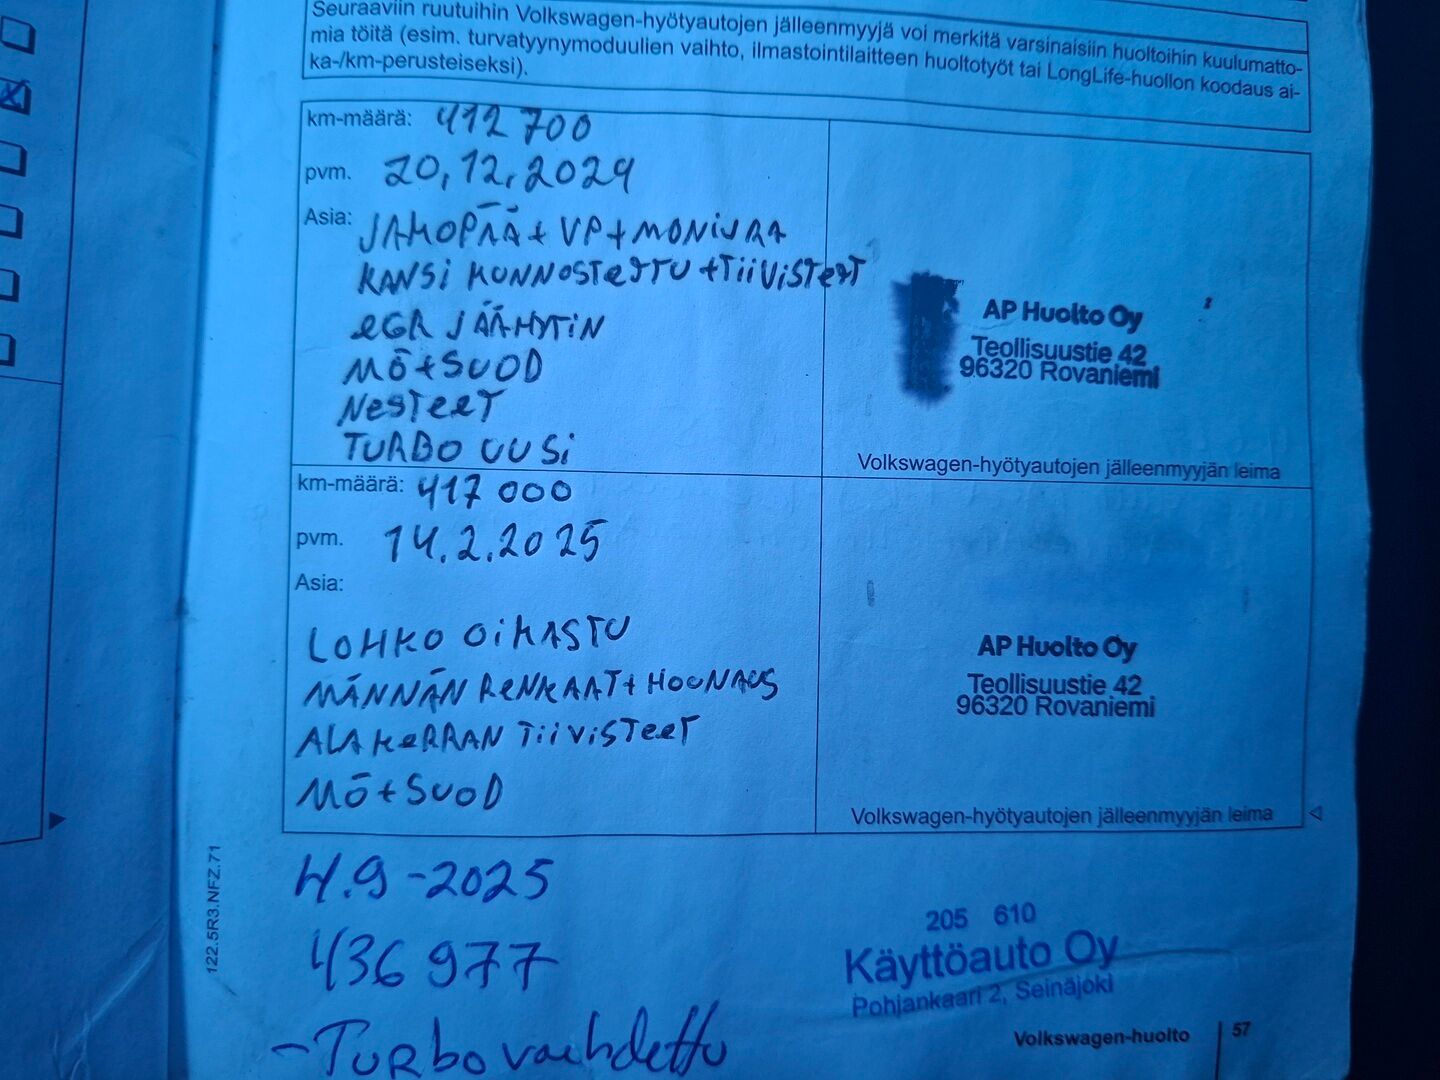 Seuraaviin ruutuihin Volkswagen-hyötyautojen jälleenmyyjä voi merkitä varsinaisiin huoltoihin kuulumatto-
mia töitä (esim. turvatyynymoduulien vaihto, ilmastointilaitteen huoltotyöt tai LongLife-huollon koodaus ai-
ka-/km-perusteiseksi).
km-määrä: 412 700
pvm. 20.12.2024
Asia: JAKOPÄÄ + VP + MONIURA
KANSI KUNNOSTETTU + TIIVISTEET
EGR JÄÄHYTIN
MÖ + SUOD
NESTEET
TURBO UUSI
AP Huolto Oy
Teollisuustie 42
96320 Rovaniemi
Volkswagen-hyötyautojen jälleenmyyjän leima
km-määrä: 417 000
pvm. 14.2.2025
Asia:
LOHKO OIKASTU
MÄNNÄN RENKAAT + HOONAUS
ALAKERRAN TIIVISTEET
MÖ + SUOD
AP Huolto Oy
Teollisuustie 42
96320 Rovaniemi
Volkswagen-hyötyautojen jälleenmyyjän leima
4.9-2025
436 977
- Turbo vaihdettu
205 610
Käyttöauto Oy
Pohjankaari 2, Seinäjoki
122.5R3.NFZ.71
Volkswagen-huolto 57